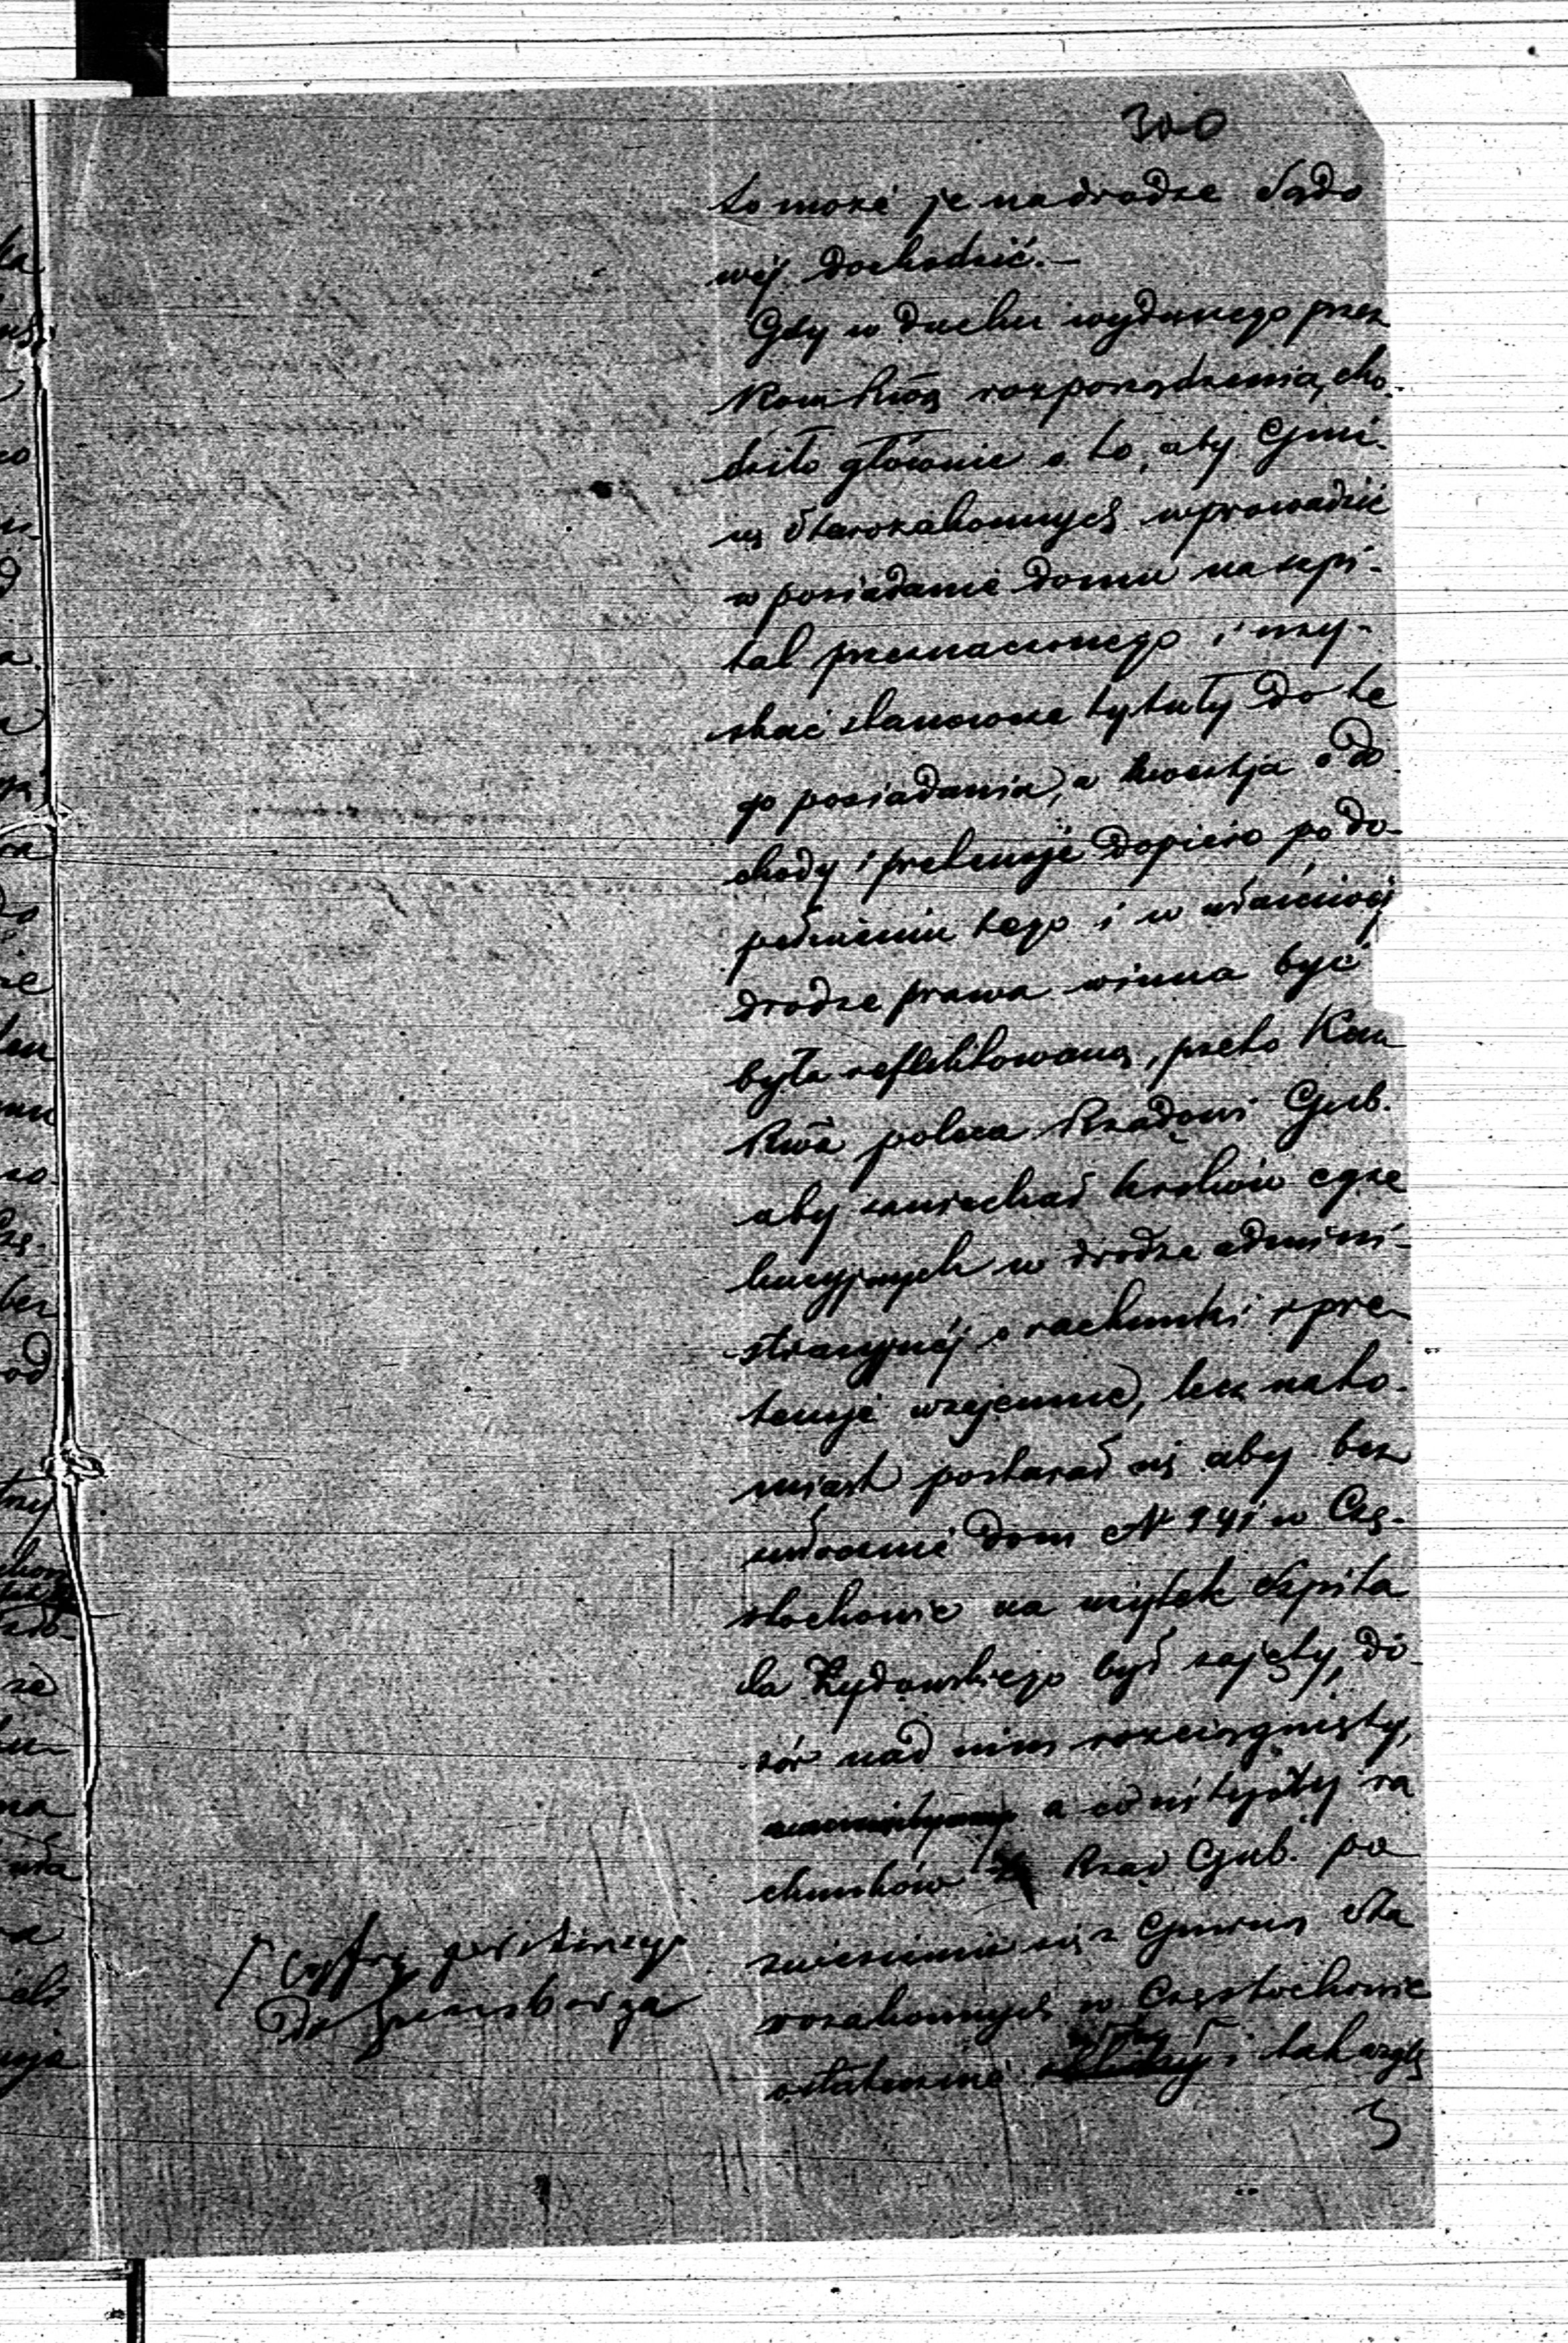 300
to może je na drodze Sądo
wéj dochodzić. —
Gdy w duchu wydanego przez
Kom Rwą rozporządzenia, cho-
dziło głównie o to, aby Gmi-
nę Starozakonnych wprowadzić
w posiadanie domu na szpi-
tal przeznaczonego i uzy-
skać stanowcze tytuły do te
go posiadania, a kwestja o do
chody i pretensje dopiero po do-
pełnieniu tego i w właściwéj
drodze prawa winna być
była reflektowaną, przeto Kom
Rwa poleca Rządowi Gub.
aby zaniechał kroków egze
kucyjnych w drodze admini-
stracyjnéj o rachunki i pre-
tensje wzajemne, lecz nato-
miast postarał się aby bez
zwłocznie dom N 141 w Czę-
stochowie na użytek Szpita
la Żydowskiego był zajęty, do-
zór nad nim rozciągnięty,
a co się tyczy ra
chunków Rząd Gub. po
zniesieniu się z Gminą Sta
rozakonnych w Częstochowie
ostatecznie i tak względ
Do Ginsberga